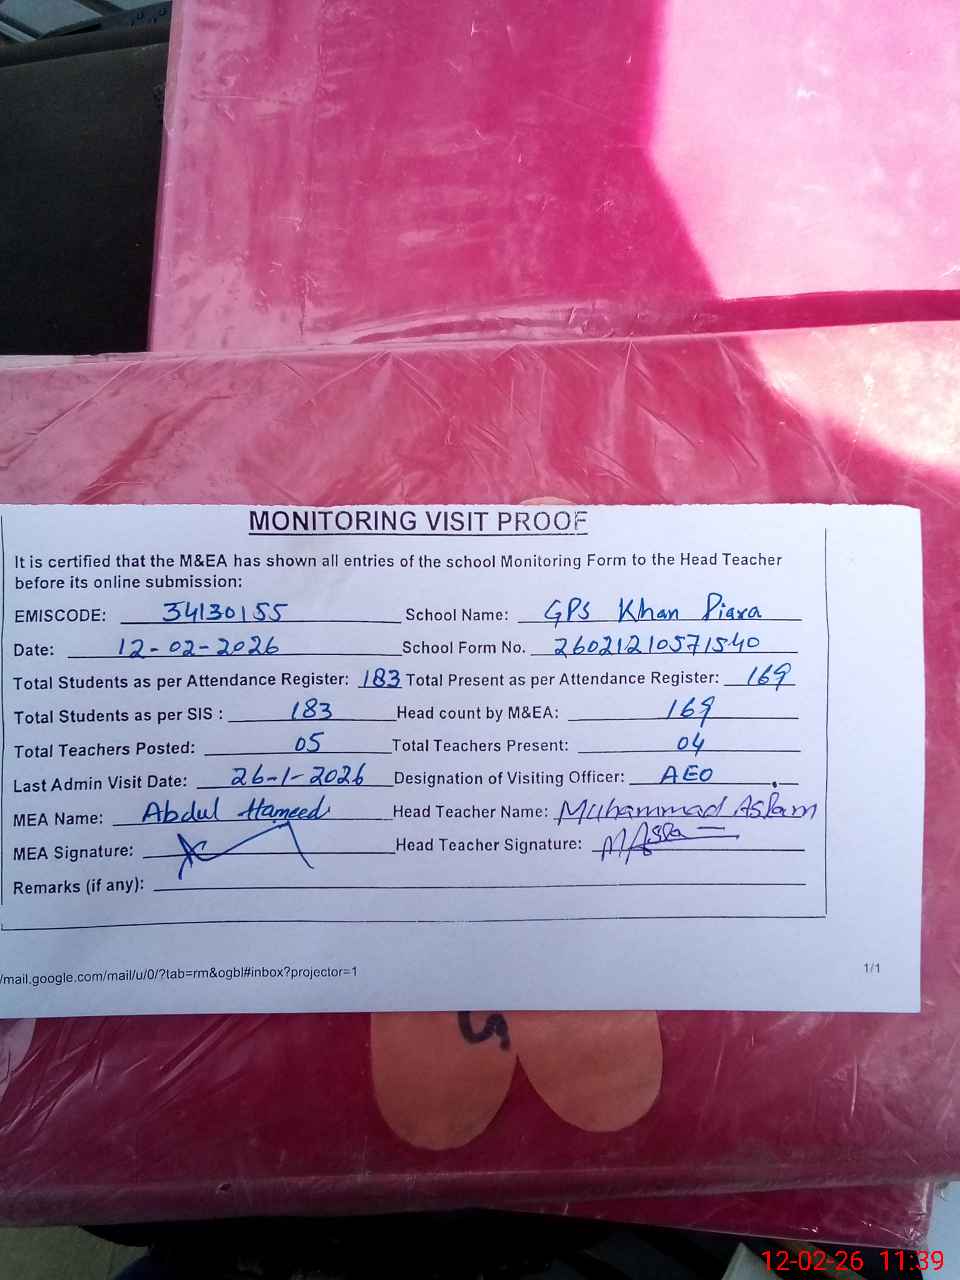 MONITORING VISIT PROOF
It is certified that the M&EA has shown all entries of the school Monitoring Form to the Head Teacher
before its online submission:
EMISCODE: 34130155 School Name: GPS Khan Piara
Date: 12-02-2026 School Form No. 26021210571540
Total Students as per Attendance Register: 183 Total Present as per Attendance Register: 169
Total Students as per SIS : 183 Head count by M&EA: 169
Total Teachers Posted: 05 Total Teachers Present: 04
Last Admin Visit Date: 26-1-2026 Designation of Visiting Officer: AEO
MEA Name: Abdul Hameed Head Teacher Name: Muhammad Aslam
MEA Signature: Head Teacher Signature: M Asla
Remarks (if any):
/mail.google.com/mail/u/0/?tab=rm&ogbl#inbox?projector=1 1/1
5
12-02-26 11:39